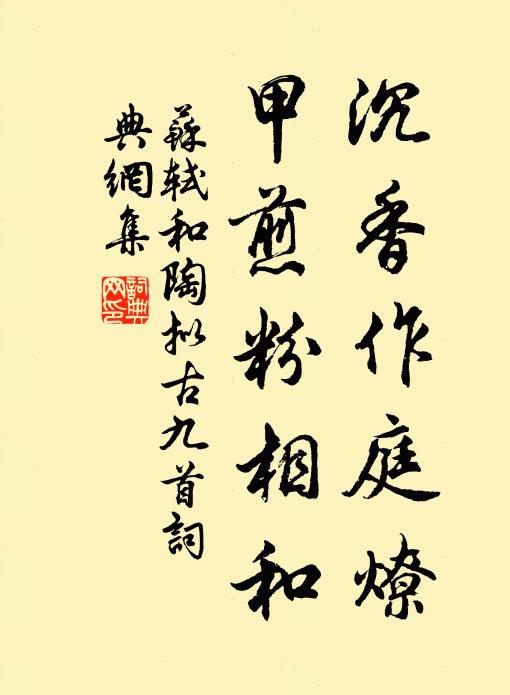 沉香作庭燎
甲煎粉相和
蘇軾和陶拟古九首詞
典網集
詞典
网印